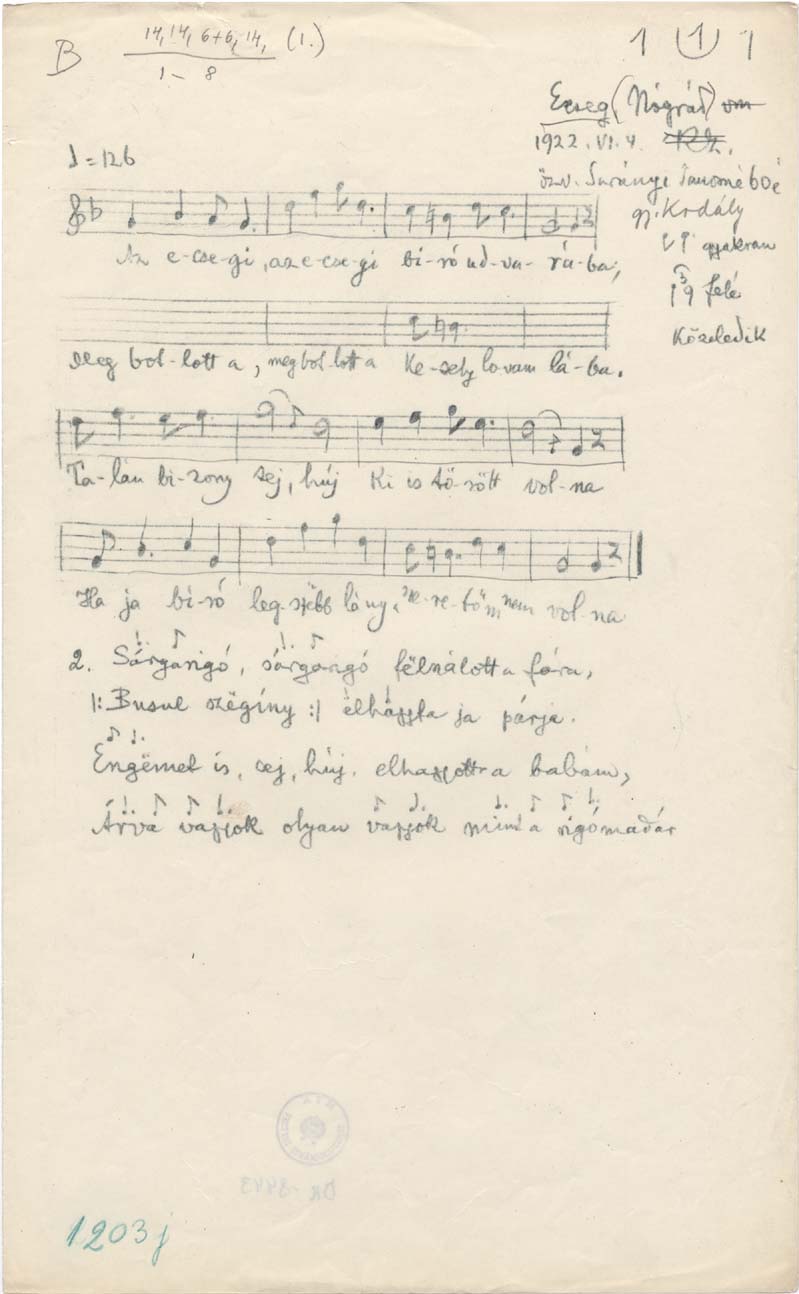 B 14, 14, 6+6, 14, (1.) 1 (1) 1
1 – 8
Ecseg (Nógrád)
1922. VI. 4.
♩ = 126
özv. Surányi Jánosné 60 é
gy. Kodály
gyakran
3
felé
közeledik
Az e-cse-gi, az e-cse-gi bi-ró ud-va-rá-ba,
Meg bot-lott a, megbot-lott a Ke-sely lovam lá-ba.
Ta-lán bi-zony sej, húj Ki is tö-rött vol-na
Ha ja bi-ró leg-szëbb lány, sze-re-töm nem vol-na
2. Sárgarigó, sárgarigó fëlszálott a fára,
|: Busul szëgíny :| elhatta ja párja.
Engëmet is, sej, húj. elhatta babám,
Árva vagyok olyan vagyok mint a rigómadár
1203j